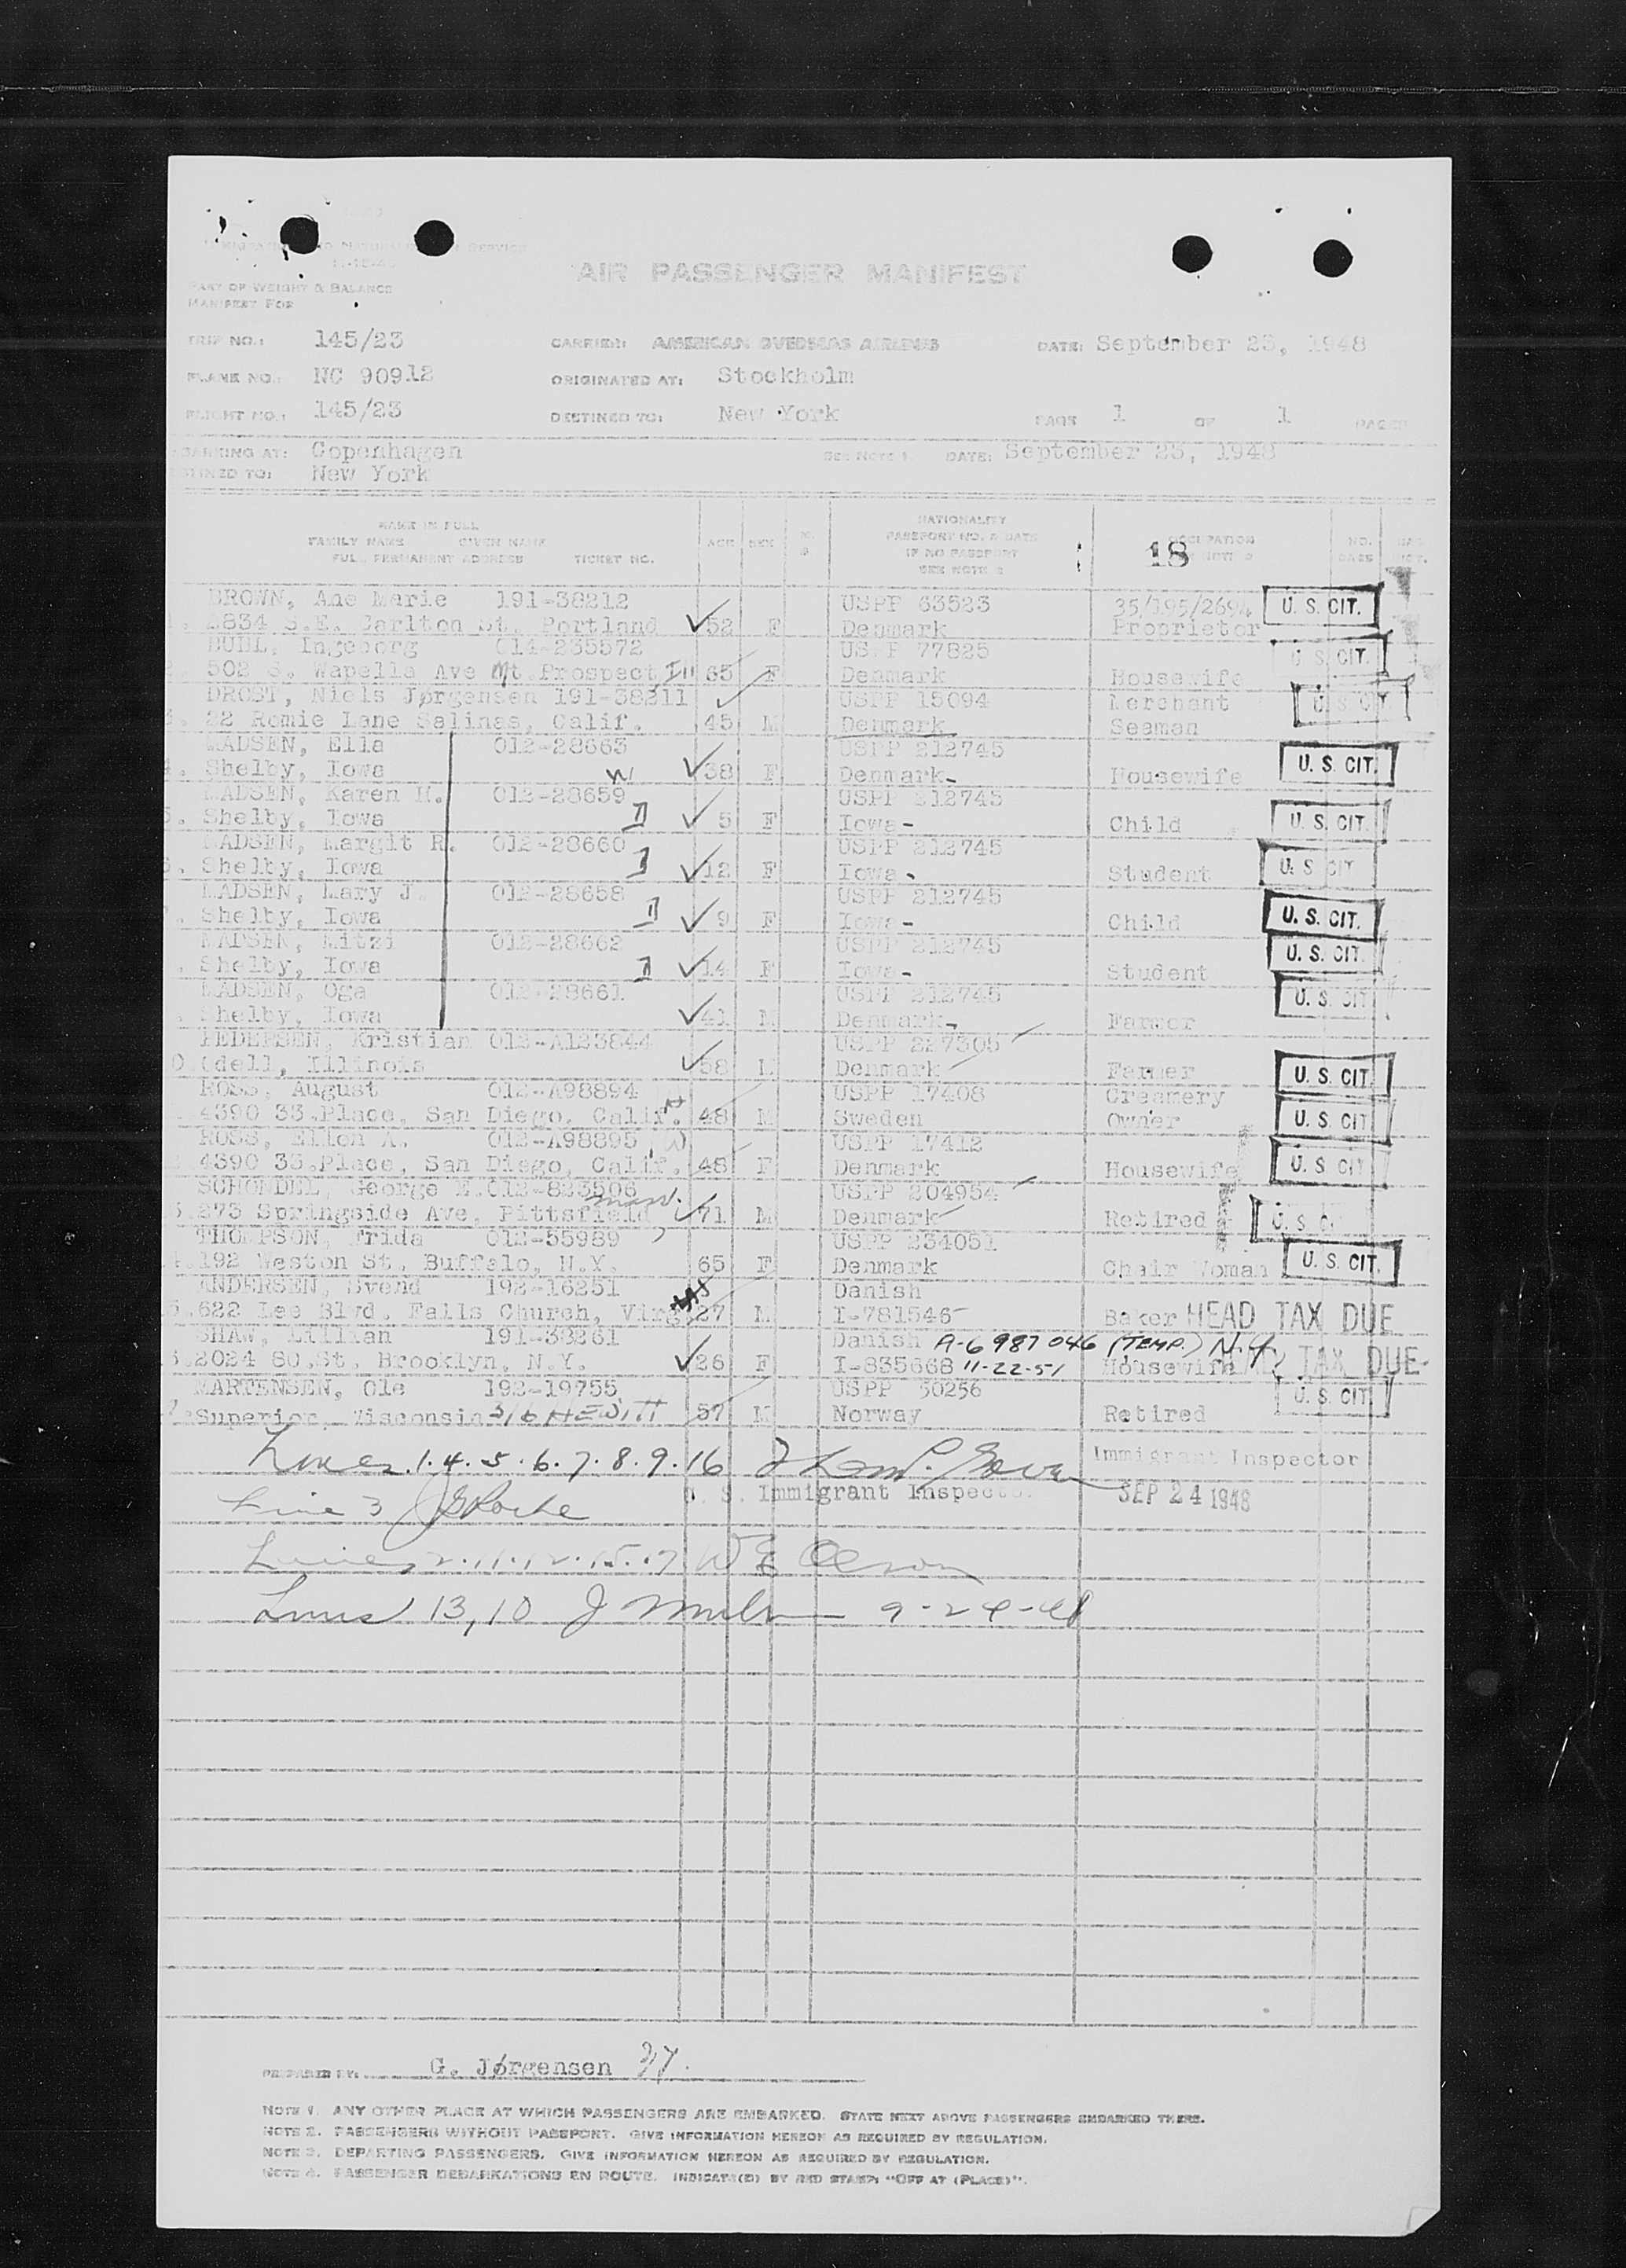 AIR PASSENGER MANIFEST
PART OF WEIGHT & BALANCE
MANIFEST FOR
TRIP NO.: 145/23 CARRIER: AMERICAN OVERSEAS AIRLINES DATE: September 23, 1948
PLANE NO.: NC 90912 ORIGINATED AT: Stockholm
FLIGHT NO.: 145/23 DESTINED TO: New York PAGE 1 OF 1 PAGES
Copenhagen SEE NOTE 1. DATE: September 23, 1948
New York
NAME IN FULL NATIONALITY
FAMILY NAME GIVEN NAME AGE SEX PASSPORT NO. & DATE 18
FULL PERMANENT ADDRESS TICKET NO. IF NO PASSPORT
SEE NOTE 2
BROWN, Ane Marie 191-38212 USPP 63523 35/195/2694 U. S. CIT.
2834 S.E. Carlton St. Portland 52 F Denmark Proprietor
Ingeborg 014-235572 77825 U S CIT.
502 S. Wapella Ave Mt. Prospect, Ill 65 F Denmark Housewife
DROST, Niels Jørgensen 191-38211 USPP 15094 Merchant
22 Romie Lane Salinas, Calif. 45 M Denmark Seaman
MADSEN, Ella 012-28663 USPP 212745 U. S. CIT.
Shelby, Iowa W 38 F Denmark- Housewife
MADSEN, Karen 012-28659 USPP 212745
Shelby, Iowa 5 F Iowa- Child U. S. CIT.
MADSEN, Margit R. 012-28660 USPP 212745
Shelby, Iowa 12 F Iowa- Student U. S CIT
MADSEN, Mary J. 012-28658 USPP 212745
Shelby, Iowa 9 F Iowa- Child U. S. CIT.
MADSEN, Mitzi 012-28662 USPP 212745 U. S. CIT.
Shelby, Iowa 14 F Iowa- Student
MADSEN, Oge 012-28661 USPP 212745 U. S. CIT
Shelby, Iowa 41 M Denmark- Farmer
PEDERSEN, Kristian 012-A123844 USPP 227305
Odell, Illinois 58 M Denmark Farmer U. S. CIT.
ROSS, August 012-A98894 USPP 17408 Creamery
4390 33.Place, San Diego, Calif. 48 M Sweden Owner U. S. CIT
ROSS, Ellen A. 012-A98895 W USPP 17412
4390 33.Place, San Diego, Calif. 48 F Denmark Housewife U. S CIT
SCHONDEL, George E. 012-823506 USPP 204954
273 Springside Ave, Pittsfield Mass. 71 M Denmark Retired
THOMPSON, Frida 012-55989 USPP 234051
192 Weston St., Buffalo, N.Y. 65 F Denmark Chair Woman U. S. CIT.
ANDERSEN, Svend 192-16251 Danish
622 Lee Blvd. Falls Church, Virg. 27 M I-781546 Baker HEAD TAX DUE
SHAW, Lillian 191-38261 Danish A-6 987 046 (TEMP.) N.Y.
2024 80.St. Brooklyn, N.Y. 26 F I-835668 11-22-51 Housewife TAX DUE
MARTENSEN, Ole 192-19755 USPP 30256 U. S. CIT.
Superior, Wisconsin 316 HEWITT 57 M Norway Retired
Lines 1. 4. 5. 6. 7. 8. 9. 16 Immigrant Inspector
Line 3 U. S. Immigrant Inspector SEP 24 1948
Lines 2. 11. 12. 15. 17 W E Olson
Lines 13, 10 J 9-24-48
PREPARED BY: G. Jørgensen
NOTE 1. ANY OTHER PLACE AT WHICH PASSENGERS ARE EMBARKED. STATE NEXT ABOVE PASSENGERS EMBARKED THERE.
NOTE 2. PASSENGERS WITHOUT PASSPORT. GIVE INFORMATION HEREON AS REQUIRED BY REGULATION.
NOTE 3. DEPARTING PASSENGERS. GIVE INFORMATION HEREON AS REQUIRED BY REGULATION.
NOTE 4. PASSENGER DEBARKATIONS EN ROUTE. INDICATE(D) BY RED STAMP: "OFF AT (PLACE)".